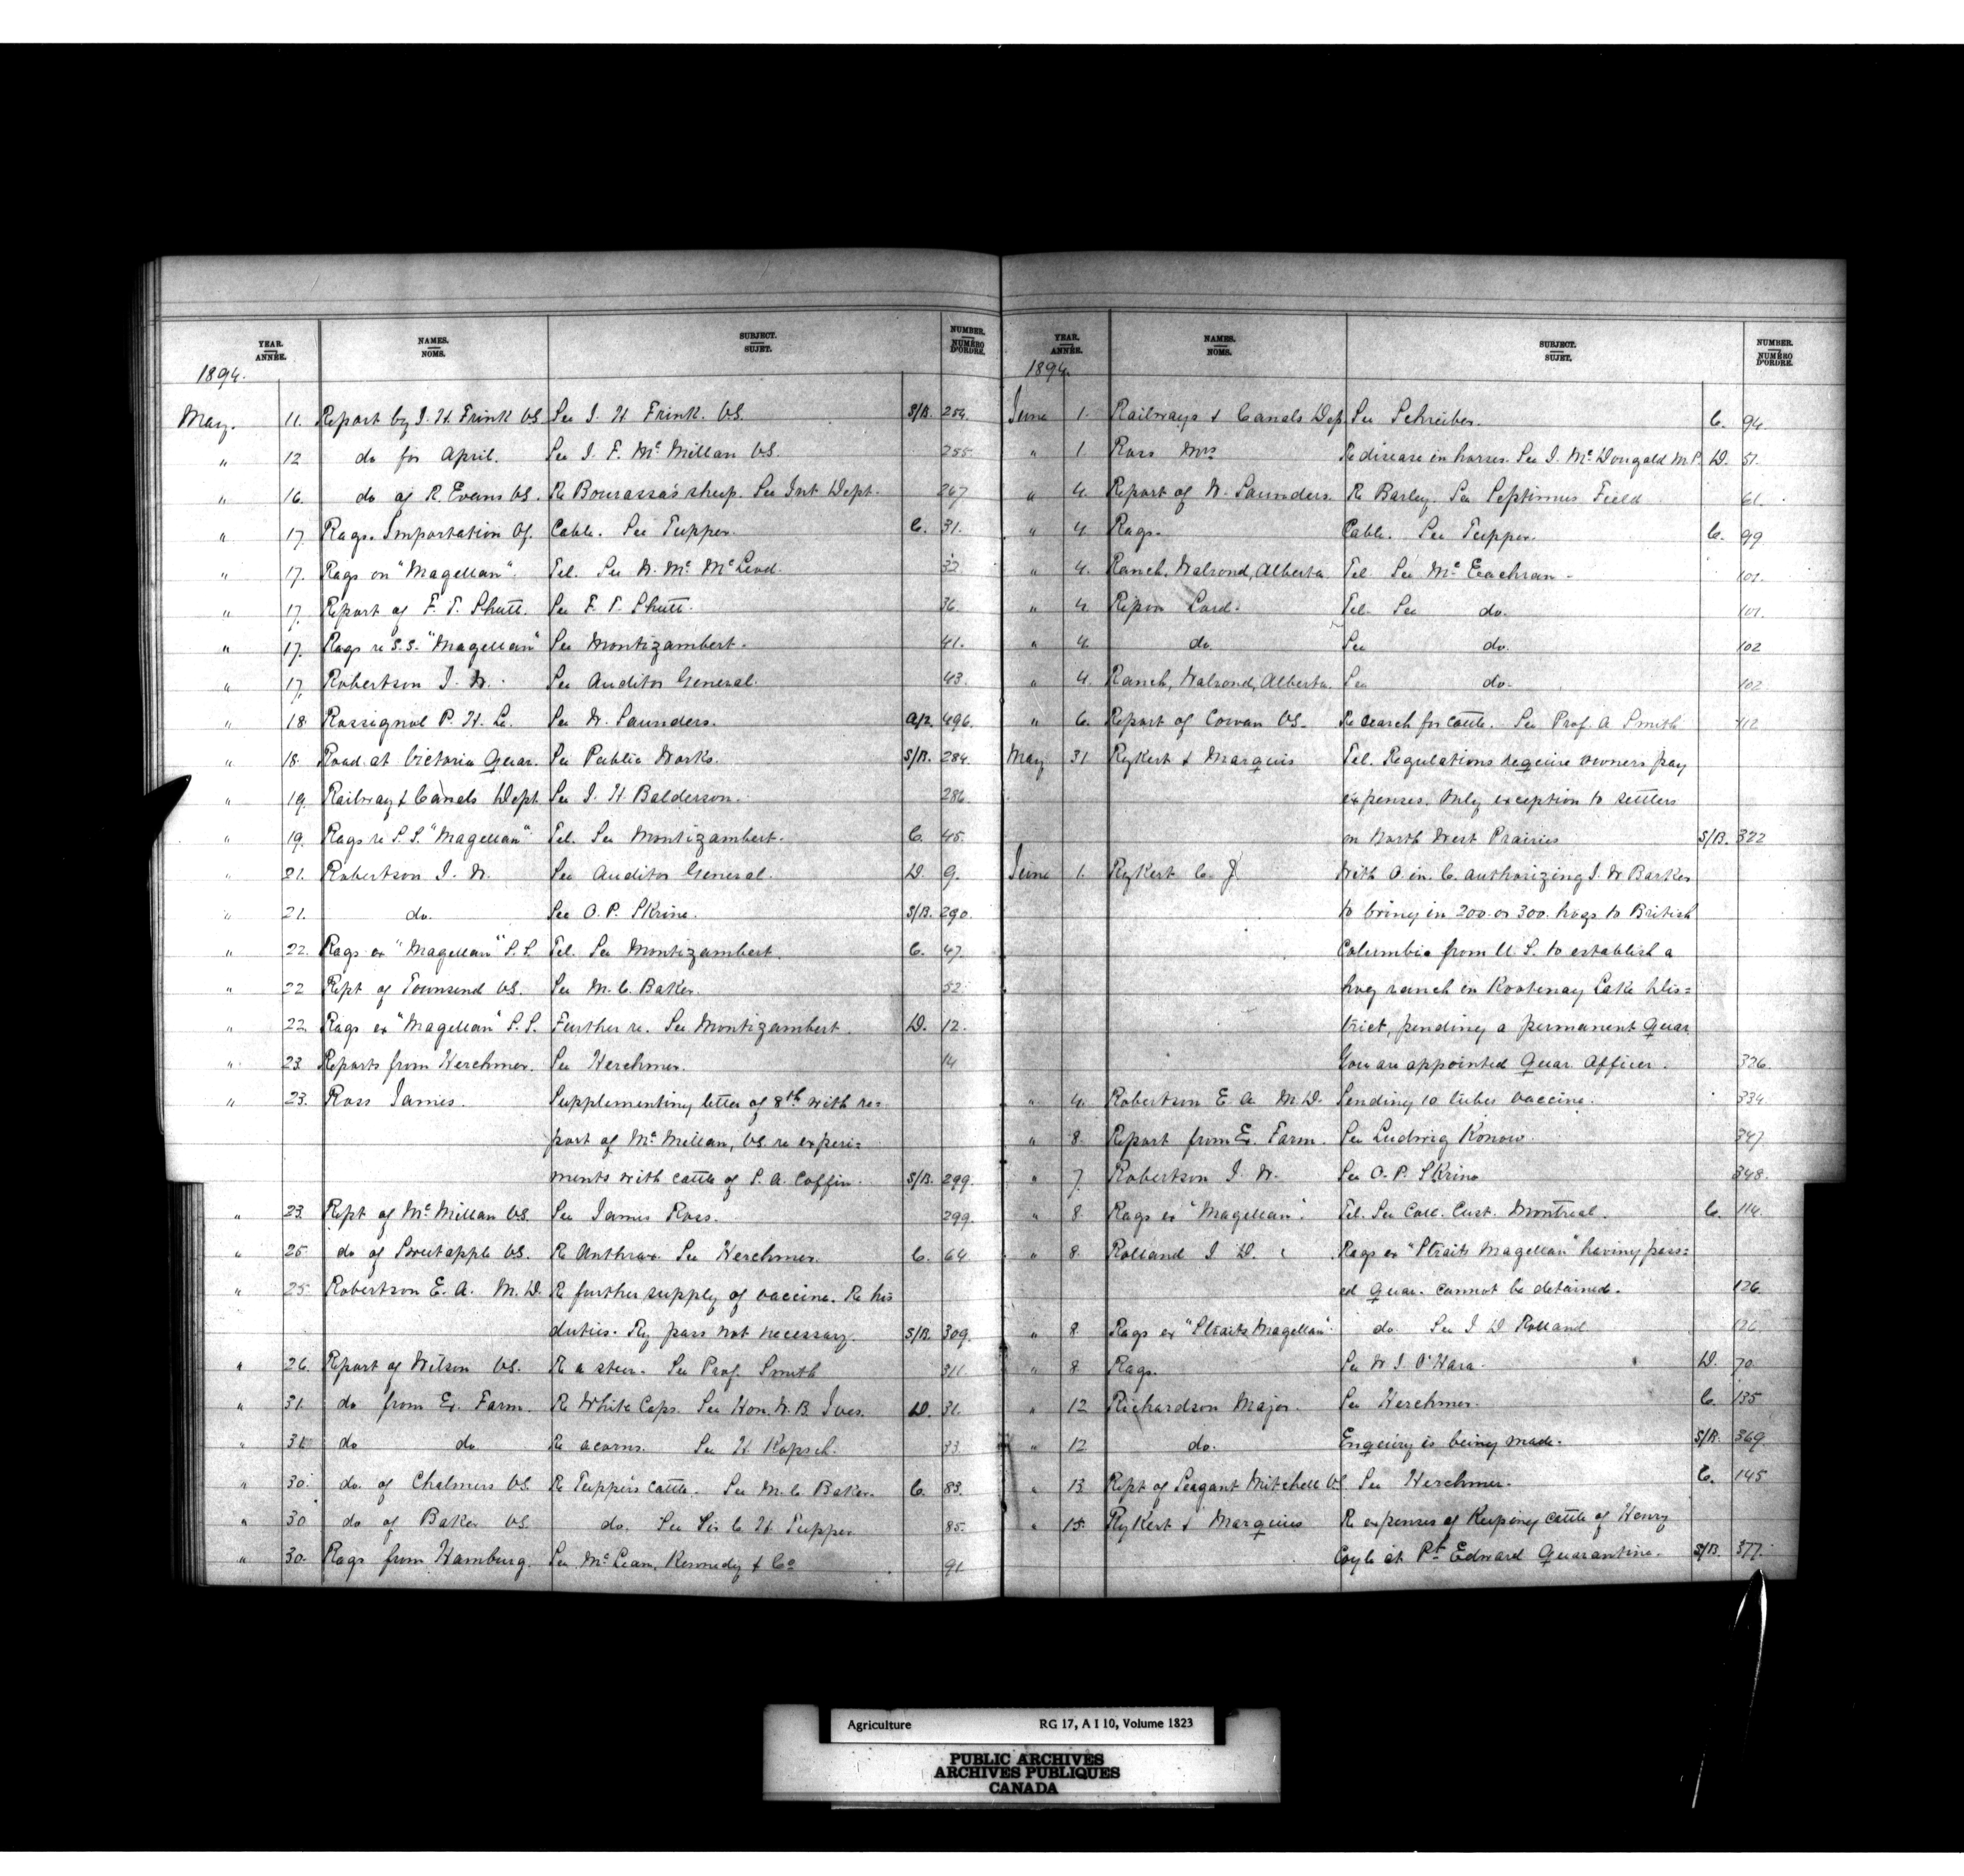 YEAR. ANNÉE. NAMES. NOMS. SUBJECT. SUJET. NUMBER. NUMÉRO D'ORDRE.
1894.
May. 11. Report by J. H. Frink VS. See J. H. Frink. VS. S/B. 254.
" 12 do for April. See J. F. Mc Millan VS. 255
" 16. do of R. Evans VS. Re Bourassa's sheep. See Int Dept. 267
" 17. Rags. Importation of. Cable. See Tupper. C. 31.
" 17. Rags on "Magellan". Tel. See Mc Leod. 32
" 17. Report of F. T. Shutt. See F. T. Shutt. 36.
" 17. Rags re S.S. "Magellan" See Montizambert. 41.
" 17. Robertson J. W. See Auditor General. 43.
" 18. Rossignol P. H. Le. See W. Saunders. 496.
" 18. Road at Victoria Quar. See Public Works. S/B. 284.
" 19. Railway & Canals Dept. See J. H. Balderson. 286.
" 19. Rags re S.S. "Magellan" Tel. See Montizambert. C. 45.
" 21. Robertson J. W. See Auditor General. D. 9.
" 21. do. See O. P. Skrine. S/B. 290.
" 22. Rags ex "Magellan" S.S. Tel. See Montizambert. C. 47.
" 22 Rept of Townsend VS. See M. C. Baker. 52
" 22. Rags ex "Magellan" S.S. Further re. See Montizambert. D. 12.
" 23. Reports from Herchmer. See Herchmer. 14
" 23. Ross James. Supplementing letter of 8th with re=
port of Mc Millan, VS. re experi=
ments with cattle of S. A. Coffin. S/B. 299.
" 23. Rept of Mc Millan VS. See James Ross. 299.
" 25. do of Sweetapple VS. Re Anthrax. See Herchmer. C. 64.
" 25. Robertson E. A. M.D. Re further supply of vaccine. Re his
duties. Ry pass not necessary. S/B. 309.
" 26. Report of Wilson VS. Re a steer. See Prof. Smith 311.
" 31. do from Ex. Farm. Re White Caps. See Hon. W. B. Ives. D. 31.
" 31. do do Re acorns. See H. Kopsch. 33.
" 30. do. of Chalmers VS. Re Tupper's cattle. See M. C. Baker. C. 83.
" 30 do of Baker VS. do. See Sir C. H. Tupper 85.
" 30. Rags from Hamburg. See Mc Lean, Kennedy & Co 91
YEAR. ANNÉE. NAMES. NOMS. SUBJECT. SUJET. NUMBER. NUMÉRO D'ORDRE.
1894.
June 1. Railways & Canals Dep. See Schreiber. C. 94.
" 1. Ross Mrs Re disease in horses. See J. Mc Dougald M.P. D. 51.
" 4. Report of W. Saunders. Re Barley. See Septimus Field 61.
" 4 Rags. Cable. See Tupper. C. 99
" 4. Ranch, Walrond, Alberta. Tel. See Mc Eachran. 101.
" 4 Ripon Lord. Tel. See do. 101.
" 4 do See do. 102
" 4. Ranch, Walrond, Alberta. See do. 102
" 6. Report of Cowan VS. Re search for cattle. See Prof. A Smith 112
May 31 Rykert & Marquis Tel. Regulations require owners pay
expenses. Only exception to settlers
on North West Prairies S/B. 322
June 1. Rykert C. J With O. in. C. authorizing J. W Barker
to bring in 200. or 300. hogs to British
Columbia from U. S. to establish a
hog ranch in Kootenay Lake Dis=
trict, pending a permanent Quar.
You are appointed Quar. Officer. 326.
" 4. Robertson E. A. M.D. Sending 10 tubes vaccine. 334
" 8. Report from Ex. Farm. See Ludwig Konow. 347
" 7. Robertson J. W. See O. P. Skrine 348.
" 8. Rags ex "Magellan". Tel. See Coll. Cust. Montreal. C. 114.
" 8. Rolland J. D. Rags ex "Straits Magellan" having pass=
ed Quar. cannot be detained. 126.
" 8. Rags ex "Straits Magellan" do See J D Rolland 126
" 8. Rags. See W. J. O'Hara. D. 70.
" 12 Richardson Major. See Herchmer. C. 135
" 12 do. Enquiry is being made. S/B. 369.
" 13 Rept of Seagant Mitchell VS See Herchmer. C. 145
" 15. Rykert & Marquis Re expenses of keeping cattle of Henry
Coyle at Pt Edward Quarantine. S/B. 377.
Agriculture RG 17, A I 10, Volume 1823
PUBLIC ARCHIVES
ARCHIVES PUBLIQUES
CANADA